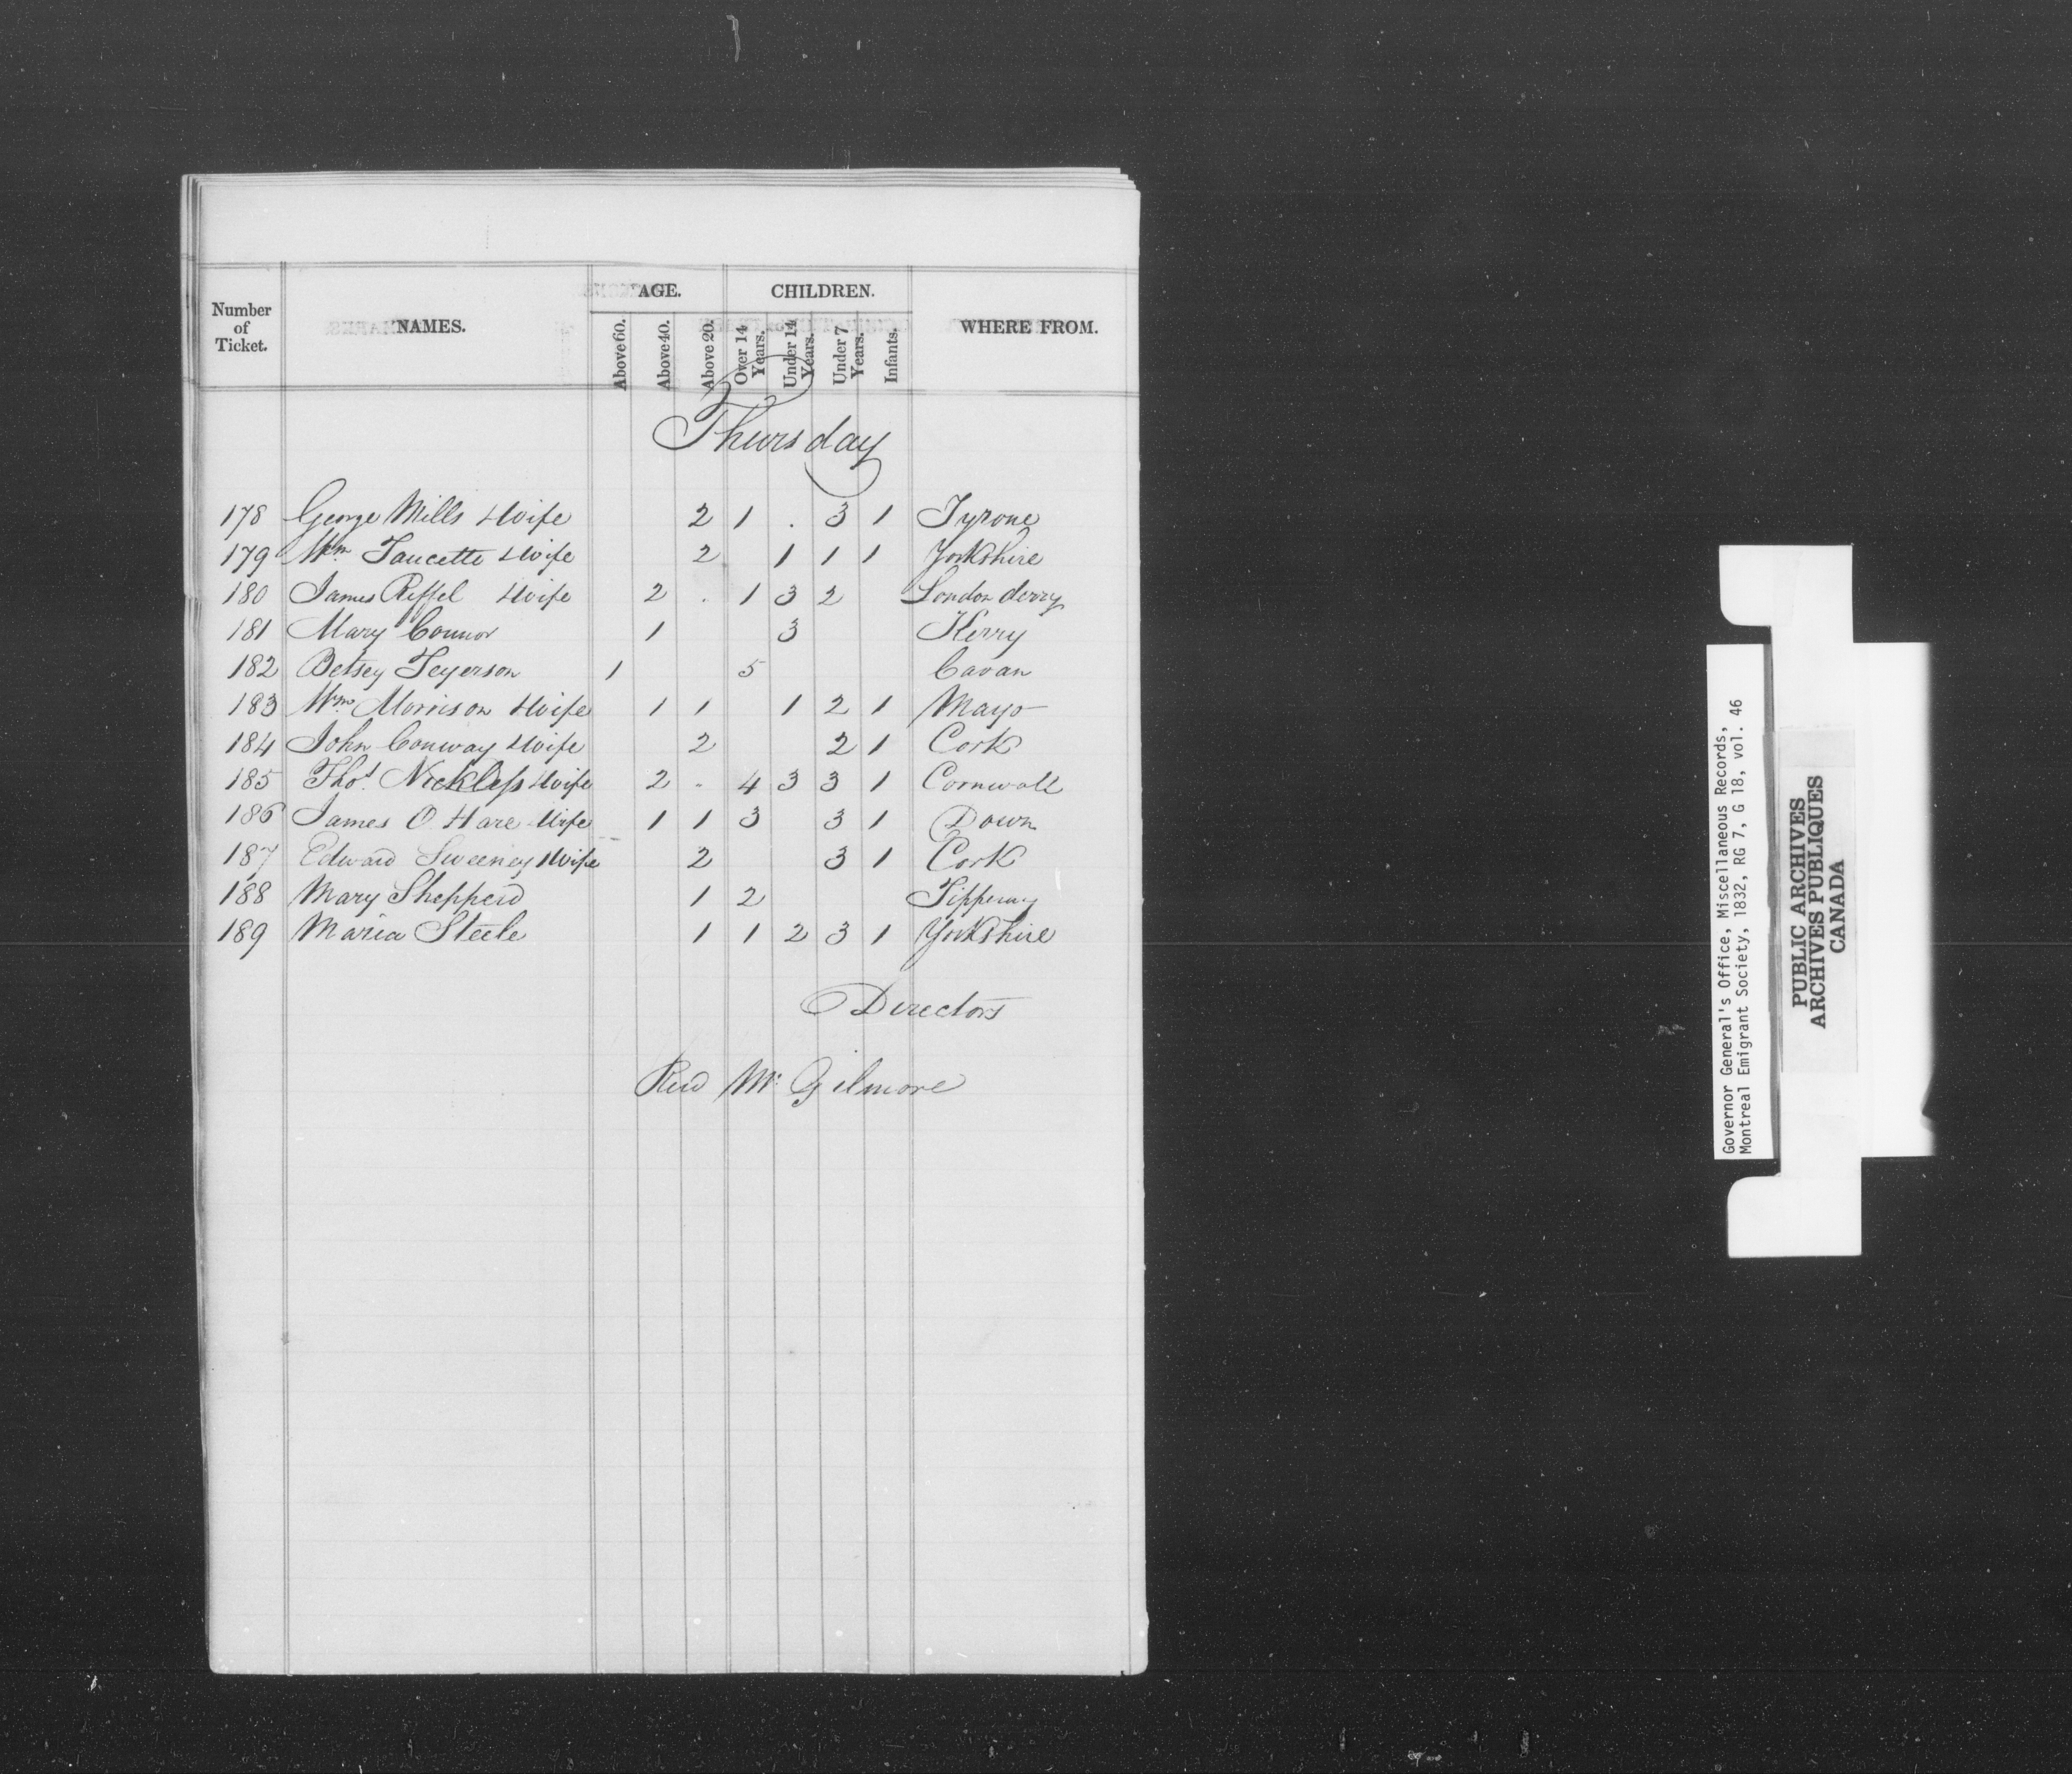 Number of Ticket. NAMES. AGE. CHILDREN. WHERE FROM.
Above 60. Above 40. Above 20. Over 14 Years. Under 14 Years. Under 7 Years. Infants.
Thursday
178 George Mills & Wife 2 1 . 3 1 Tyrone
179 Wm Faucette & Wife 2 1 1 1 Yorkshire
180 James Reffel & Wife 2 . 1 3 2 London derry
181 Mary Connor 1 3 Kerry
182 Betsey 1 5 Cavan
183 Wm Morrison & Wife 1 1 1 2 1 Mayo
184 John Conway & Wife 2 2 1 Cork
185 Thos Nickless & Wife 2 - 4 3 3 1 Cornwall
186 James O Hare & Wife 1 1 3 3 1 Down
187 Edward Sweeney & Wife 2 3 1 Cork
188 Mary Shepperd 1 2 Tipperary
189 Maria Steele 1 1 2 3 1 Yorkshire
Directors
Revd Mr Gilmore
Governor General's Office, Miscellaneous Records,
Montreal Emigrant Society, 1832, RG 7, G 18, vol. 46
PUBLIC ARCHIVES
ARCHIVES PUBLIQUES
CANADA